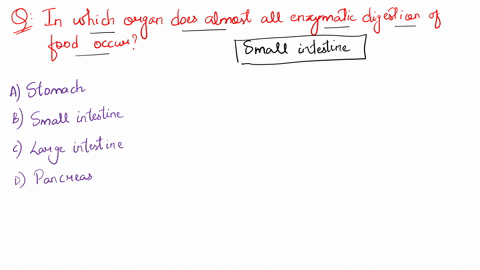 Q: In which organ does almost all enzymatic digestion of
food occur?
Small intestine
A) Stomach
B) Small intestine
C) Large intestine
D) Pancreas